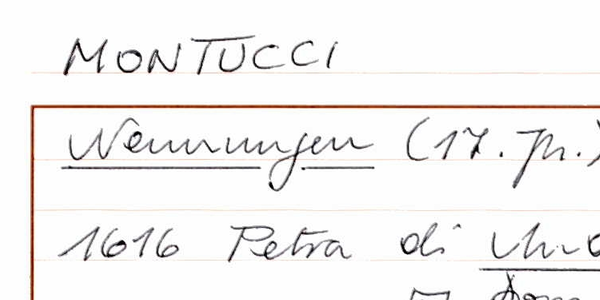 MONTUCCI
Nennungen (17. Jh.)
1616 Petra di